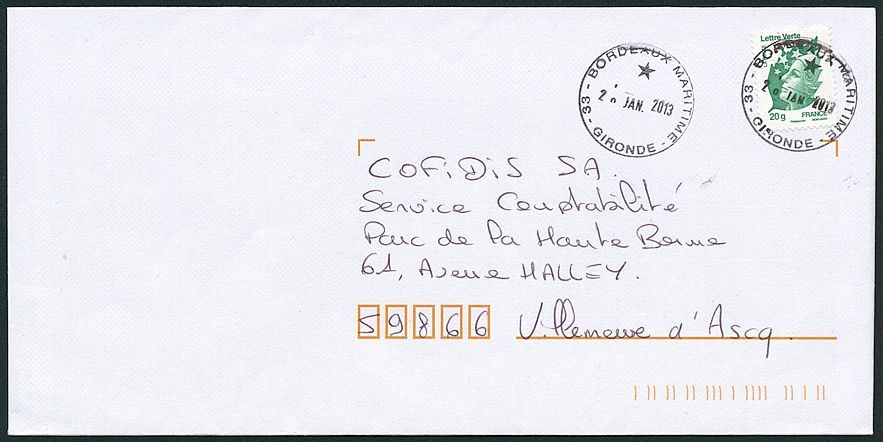 Lettre Verte
20g FRANCE
33 - BORDEAUX MARITIME - GIRONDE -
JAN. 2013
33 - BORDEAUX MARITIME - GIRONDE -
JAN. 2013
COFiDiS SA.
Service Comptabilité
Parc de la Haute Borne
61, Avenue HALLEY.
59866 Villeneuve d'Ascq.